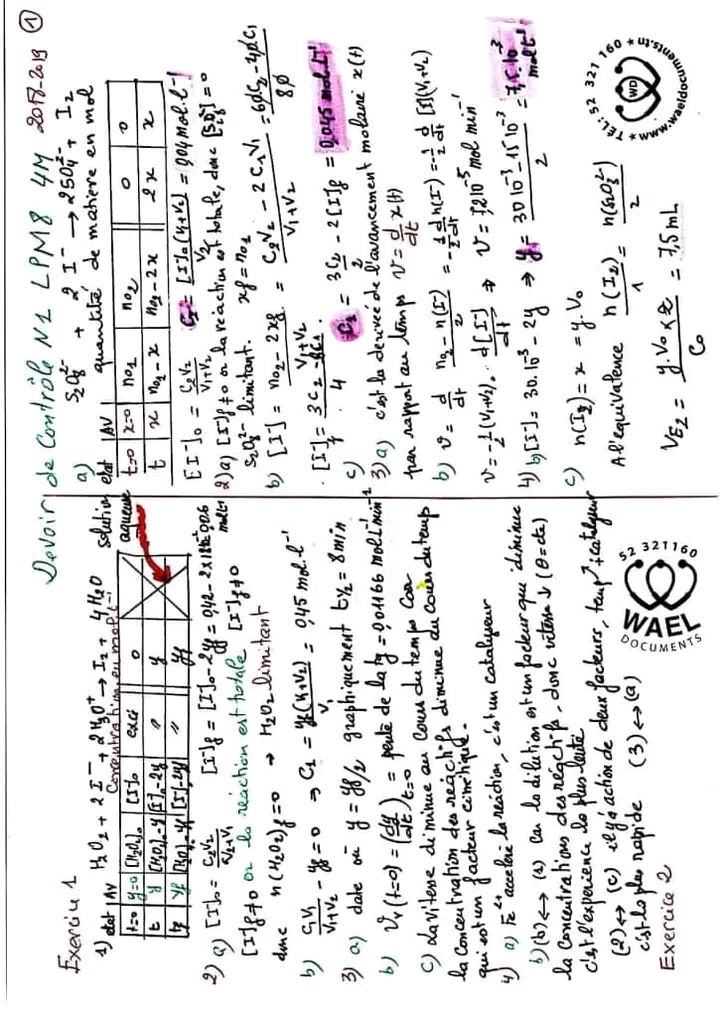 Devoir de Contrôle N1 LPM8 4M 2018-2019 1
Exercice 1
1) H2O2 + 2 I⁻ + 2 H3O⁺ → I2 + 4 H2O
état AV Concentration en mol.L⁻¹ solution aqueuse
t=0 y=0 [H2O2]0 [I⁻]0 excé 0
t y [H2O2]0-y [I⁻]0-2y " y
tf yf [H2O2]0-yf [I⁻]0-2yf " yf
2) a) [I⁻]0 = C2V2/V2+V1 [I⁻]f = [I⁻]0-2yf
[I⁻]f ≠ 0 or la réaction est totale [I⁻]f ≠ 0
donc n(H2O2)f = 0 → H2O2 limitant
b) C1V1/V1+V2 - yf = 0 ⇒ C1 = yf(V1+V2)/V1 = 0,45 mol.L⁻¹
3) a) date où y = yf/2 graphiquement t1/2 = 8 min
b) Vv(t=0) = (dy/dt)t=0 = pente de la tg = 0,01166 mol.L⁻¹min⁻¹
c) La vitesse diminue au cours du temps car
la concentration des réactifs diminue au cours du temps
qui est un facteur cinétique.
4) a) Fe²⁺ accélère la réaction, c'est un catalyseur
b) (b) ↔ (1) Car la dilution est un facteur que diminue
la concentrations des réactifs, donc vitesse ↓ (θ=cte)
c'est l'expérience la plus lente
(2) ↔ (c) il y a action de deux facteurs, temp↗ + catalyseur
c'est le plus rapide (3) ↔ (a)
Exercice 2
52 321160
WAEL
DOCUMENTS
a) S2O8²⁻ + 2 I⁻ → 2SO4²⁻ + I2
état AV quantité de matière en mol
t=0 x=0 n01 n02 0 0
t x n01-x n02-2x 2x x
[I⁻]0 = C2V2/V1+V2 C2 = [I⁻]0(V1+V2)/V2 = 0,04 mol.L⁻¹
2) a) [I⁻]f ≠ 0 or la réaction est totale, donc [S2O8²⁻]f = 0
S2O8²⁻ limitant. xf = n01
b) [I⁻]f = n02 - 2xf/V1+V2 = C2V2 - 2C1V1/V1+V2
c)
3) a) c'est la dérivée de l'avancement molaire x(t)
par rapport au temps v = d/dt x(t)
b) v = d/dt n02 - n(I⁻)/2 = -1/2 d/dt n(I⁻) = -1/2 d/dt [I⁻](V1+V2)
v = -1/2(V1+V2) . d[I⁻]/dt
4) b) [I⁻] = 30.10⁻³ - 2y ⇒ y = 30.10⁻³ - 15.10⁻³/2 = 7,5.10⁻³ mol.L⁻¹
c) n(I2) = x = y.V0
A l'équivalence n(I2)/1 = n(S2O3²⁻)/2
VE2 = y.V0 x 2/C0 = 7,5 mL
TÉL: 52 321 160 * www.waeldocuments.tn *
WD